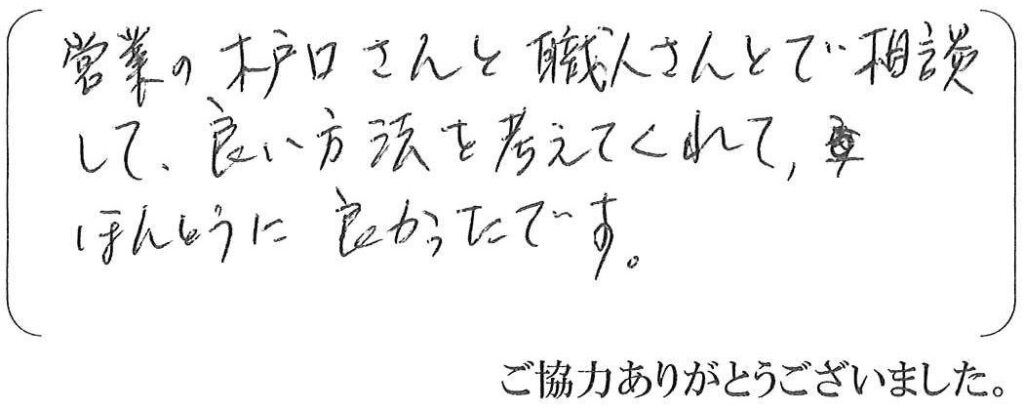 営業の木戸口さんと職人さんとで相談
して、良い方法を考えてくれて,
ほんとうに良かったです。
ご協力ありがとうございました。